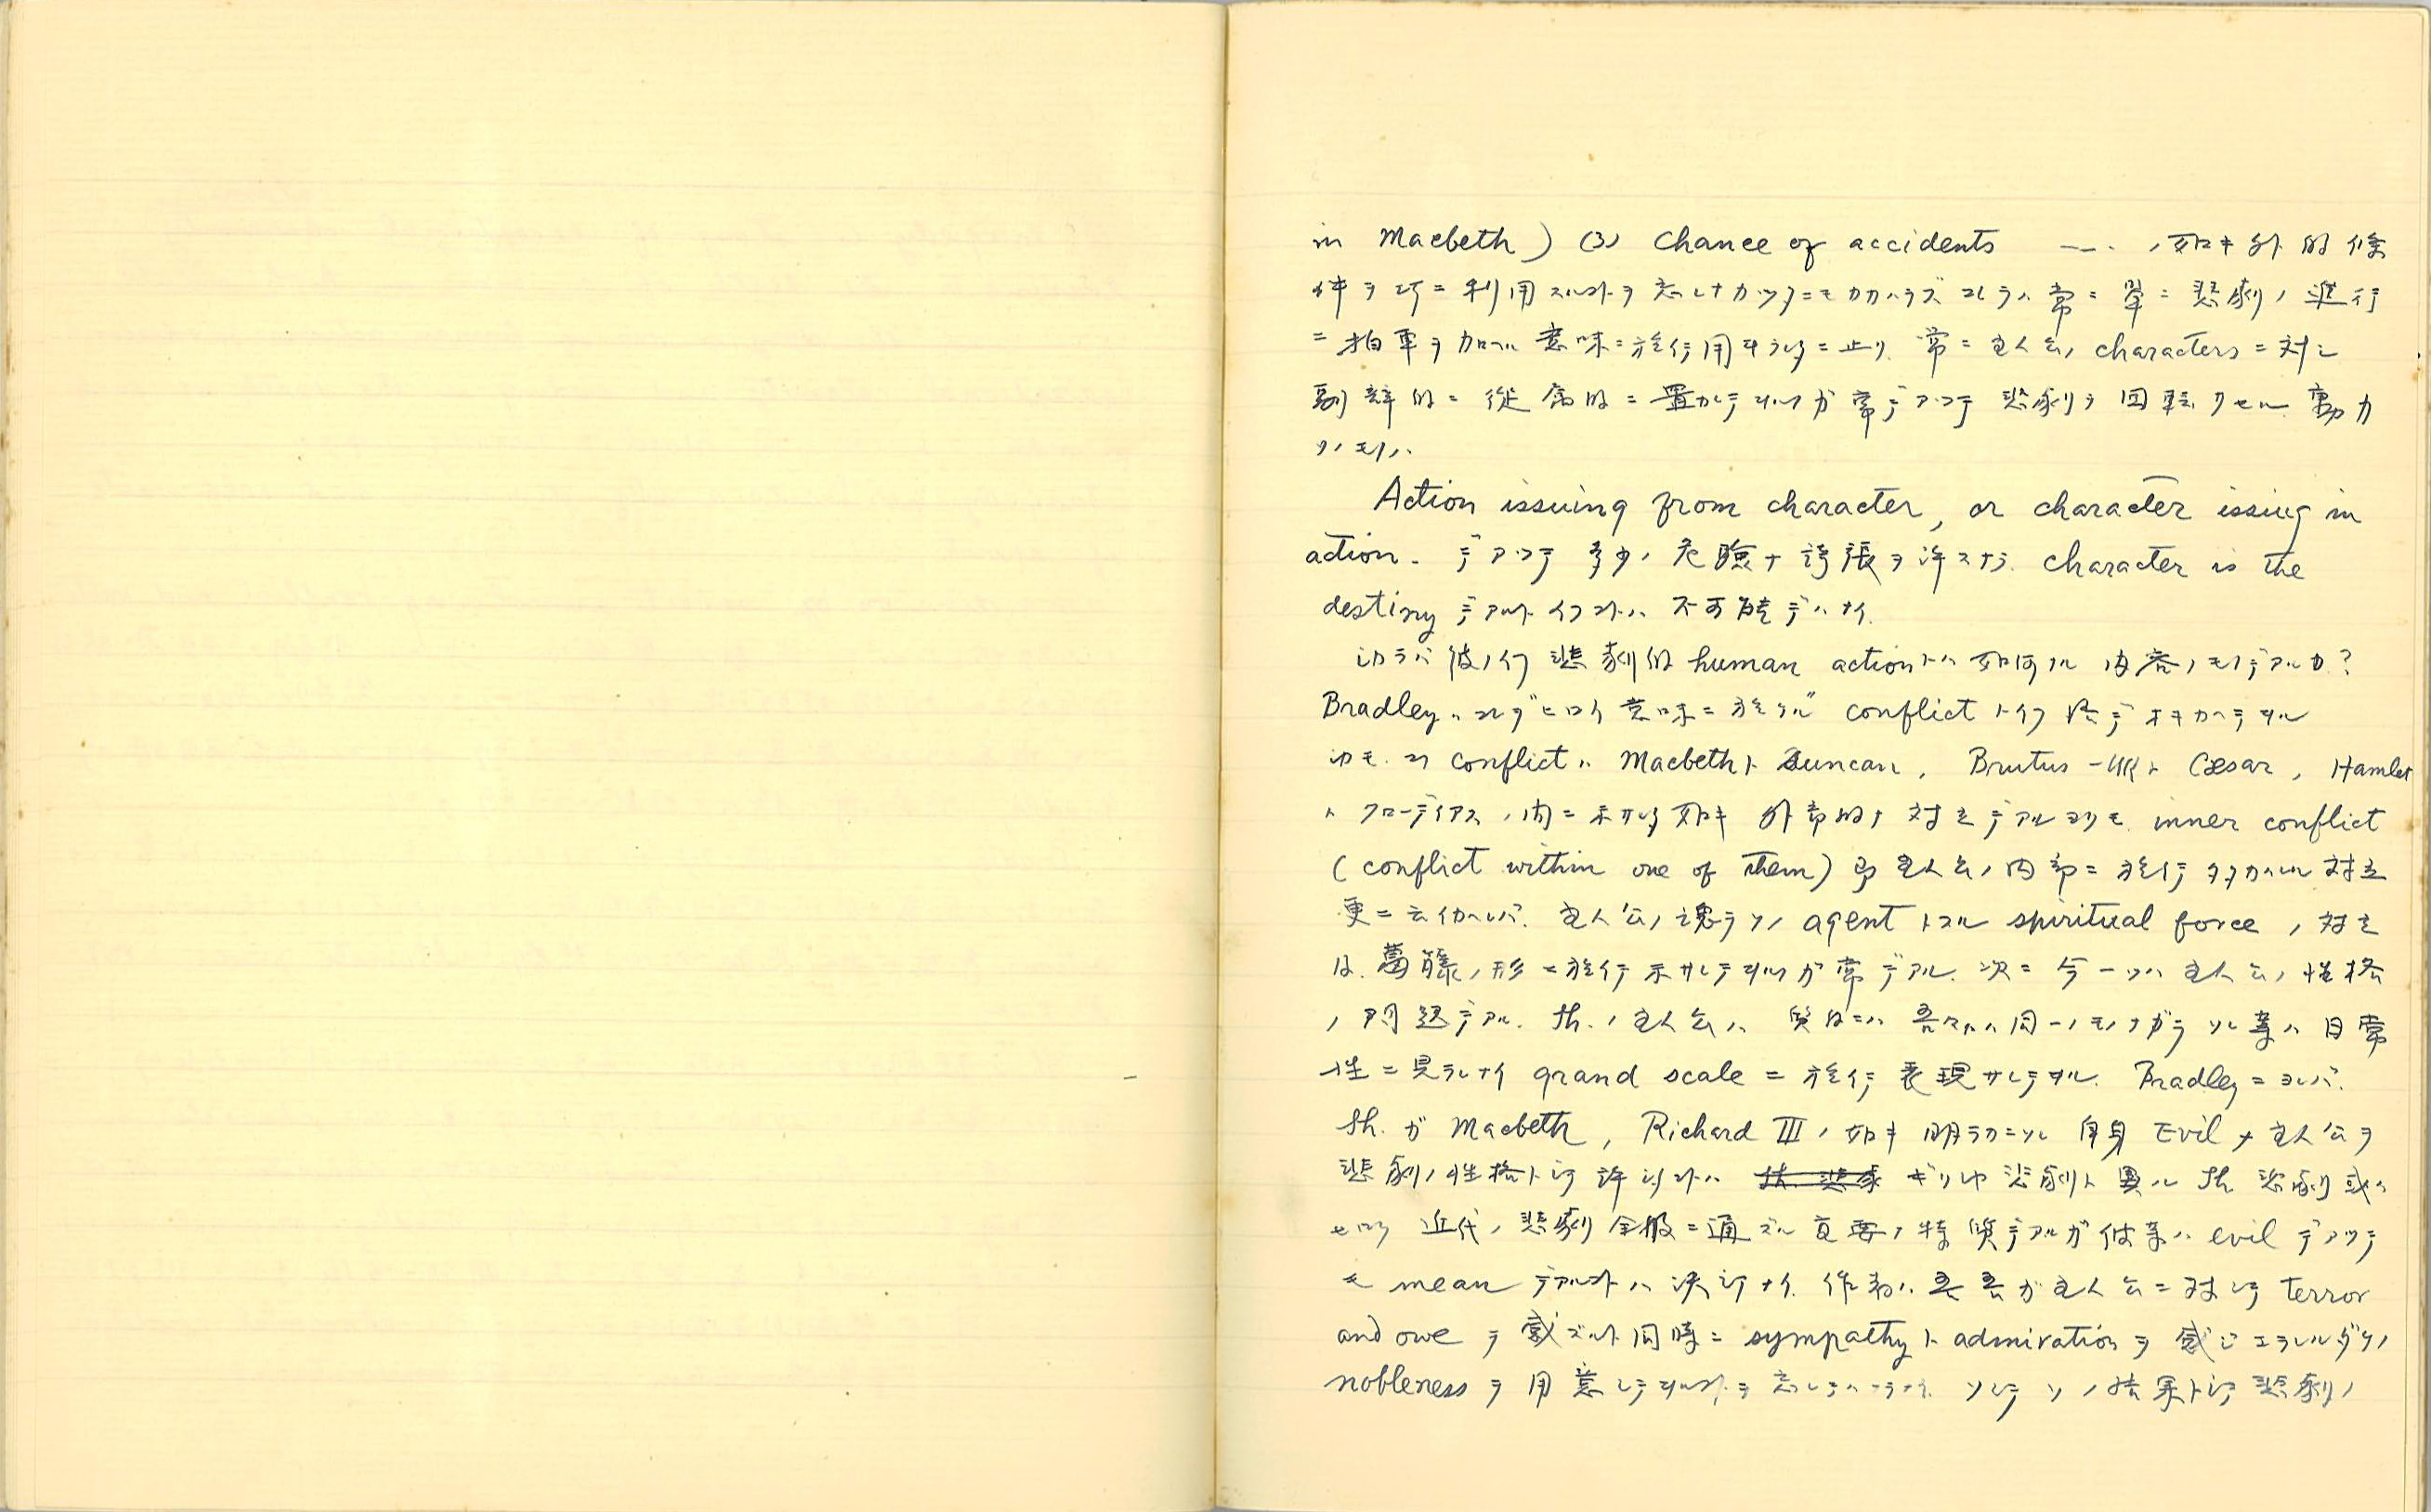 in Macbeth) (3) Chance of accidents ―・ノ如キ外的條
件ヲ巧ニ利用スルコトヲ忘レナカッタニモカカハラズコレラハ常ニ單ニ悲劇ノ進行
ニ拍車ヲ加ヘル意味ニ於テ用ヰラレルニ止リ 常ニ主人公ノ characters ニ対シ
副辞的ニ從属的ニ置カレテヰルノガ常デアッテ 悲劇ヲ回転サセル動力
ソノモノハ
Action issuing from character, or character issuing in
action. デアッテ 多少ノ危險ナ誇張ヲ許スナラ character is the
destiny デアルト イフコトハ 不可能デハナイ.
シカラバ彼ノ 悲劇的 human action トハ 如何ナル 内容ノモノデアルカ?
Bradley ハ コレヲ"ヒロイ意味ニ於ケル" conflict トイフ 語デ オキカヘテヰル
シカモ コノ conflict ハ Macbeth ト Duncan, Brutus 一味ト Cæsar, Hamlet
ト クローディアスノ間ニ示サレル如キ 外部的ナ 対立デアルヨリモ inner conflict
(conflict within one of them) 即 主人公ノ内部ニ於テ タタカハレル 対立
更ニ云ヒカヘレバ. 主人公ノ魂ヲソノ agent トスル spiritual force ノ対立
的 葛籐ノ形ニ於テ示サレテヰルノガ常デアル. 次ニ今一ツハ主人公ノ性格
ノ問題デアル. Sh. ノ主人公ハ 質的ニハ 吾々トハ同一ノモノナガラ ソレ等ハ日常
性ニ見ラレナイ grand scale ニ於テ表現サレテヰル. Bradley ニヨレバ.
Sh. ガ Macbeth, Richard III ノ如キ 明ラカニソレ自身 Evil ナ主人公ヲ
悲劇ノ性格トシテ許シタコトハ ギリシヤ悲劇ト異ル Sh. 悲劇 或ハ
ムシロ 近代ノ悲劇全般ニ通ズル重要ノ特質デアルガ彼等ハ evil デアッテ
モ mean デアルコトハ決シテナイ. 作者ハ吾吾ガ主人公ニ対シテ terror
and owe ヲ感ズルト同時ニ sympathy ト admiration ヲ感ジエラレルダケノ
nobleness ヲ用意シテヰルコトヲ忘レテハヰナイ. ソシテ ソノ結果トシテ悲劇ノ